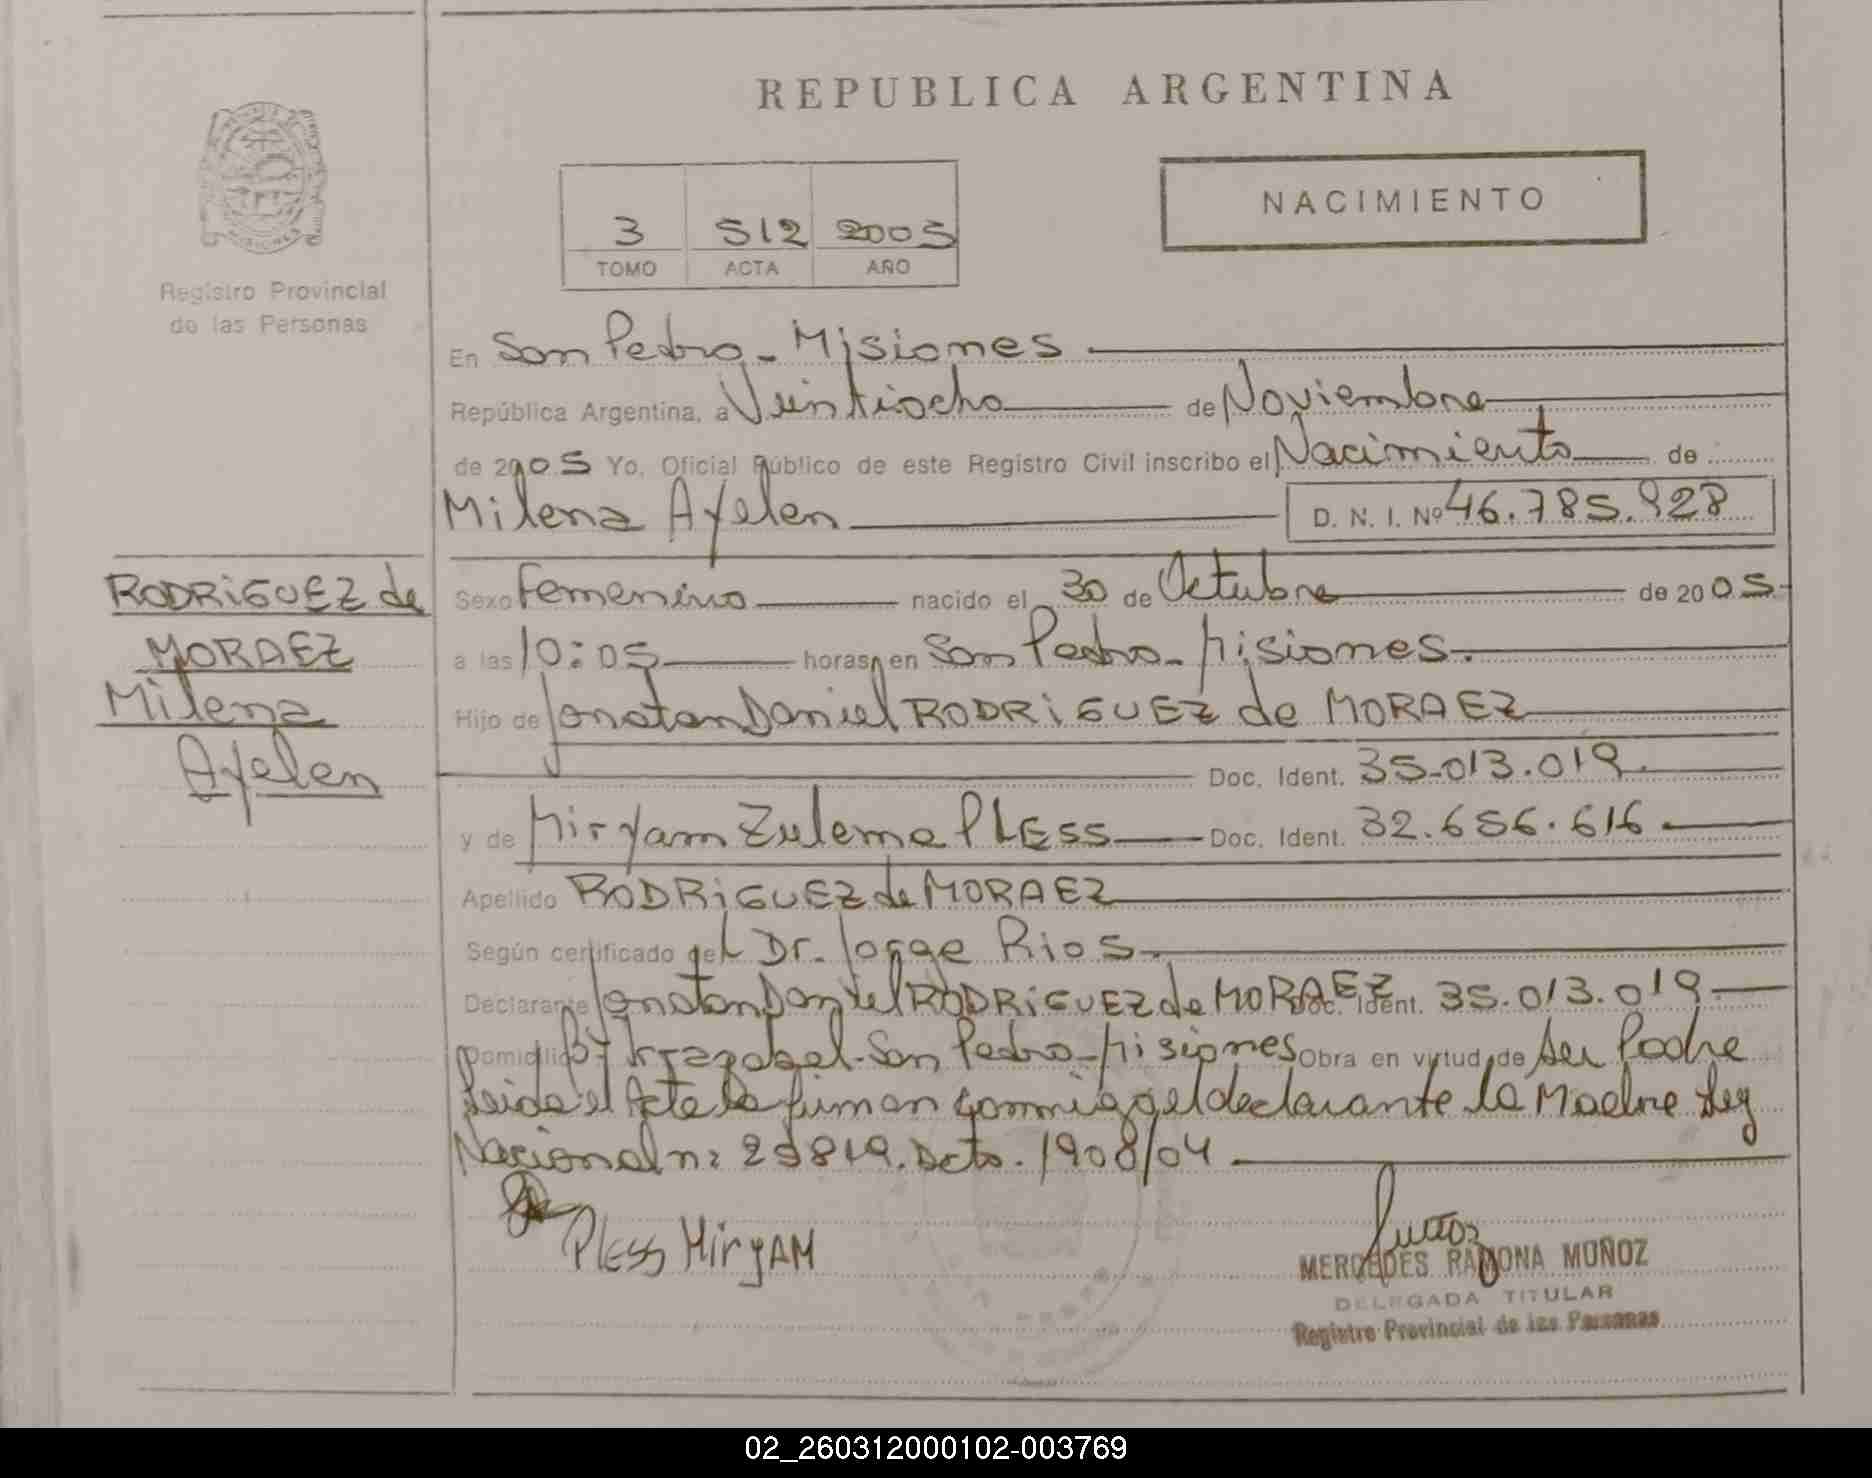 REPUBLICA ARGENTINA
NACIMIENTO
3 512 2005
TOMO ACTA AÑO
Registro Provincial
de las Personas
En San Pedro - Misiones
República Argentina, a Veintiocho de Noviembre
de 2005 Yo, Oficial Público de este Registro Civil inscribo el Nacimiento de
Milena Ayelen D. N. I. Nº 46.785.928
RODRIGUEZ de
MORAEZ
Milena
Ayelen
Sexo Femenino nacido el 30 de Octubre de 2005
a las 10:05 horas, en San Pedro - Misiones.
Hijo de Jonatan Daniel RODRIGUEZ de MORAEZ
Doc. Ident. 35.013.019
y de Miryam Zulema PLESS Doc. Ident. 32.656.616
Apellido RODRIGUEZ de MORAEZ
Según certificado del Dr. Jorge Rios
Declarante Jonatan Daniel RODRIGUEZ de MORAEZ Doc. Ident. 35.013.019
Domicilio Bº San Pedro - Misiones Obra en virtud de ser Padre
Leida el Acta la firman conmigo el declarante la Madre Ley
Nacional n: Dcto. 1908/04
PLESS MiryAM
MERCEDES RAMONA MUÑOZ
DELEGADA TITULAR
Registro Provincial de las Personas
02_260312000102-003769